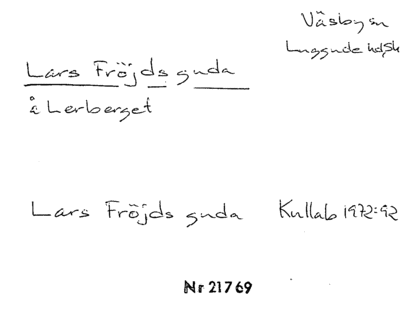 Väsby sn
Luggude hd, Sk
Lars Fröjds guda
å Lerberget
Lars Fröjds guda Kullab 1972:92
Nr 21769